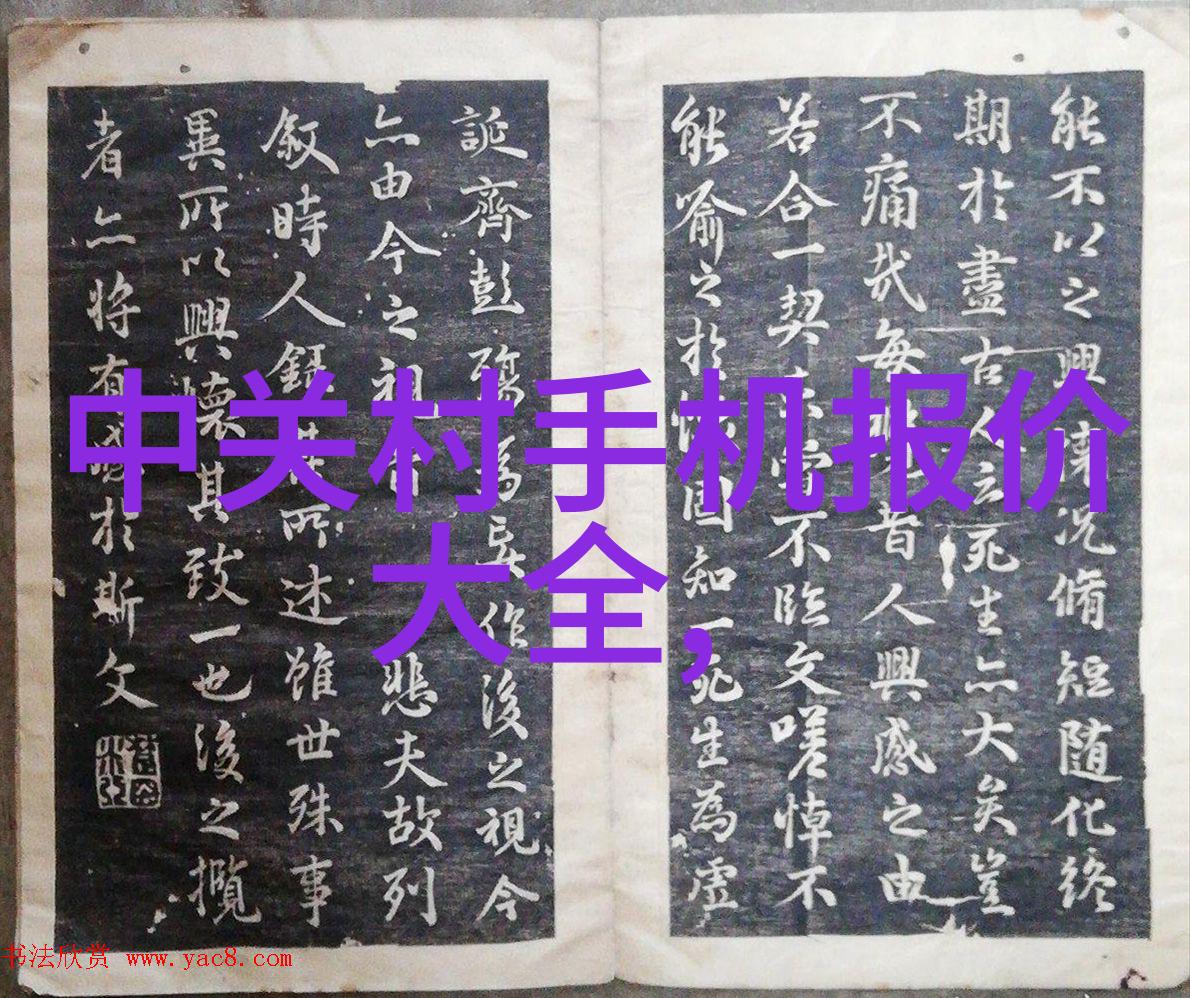 能不以之興懷况脩短随化終
期於盡古人云死生亦大矣豈
不痛哉每攬昔人興感之由
若合一契未嘗不臨文嗟悼不
能喻之於懷固知一死生為虛
誕齊彭殤為妄作後之視今
亦由今之視昔悲夫故列
敘時人錄其所述雖世殊事
異所以興懷其致一也後之攬
者亦將有感於斯文
中关村手机报价
大全,
书法欣赏 www.yac8.com